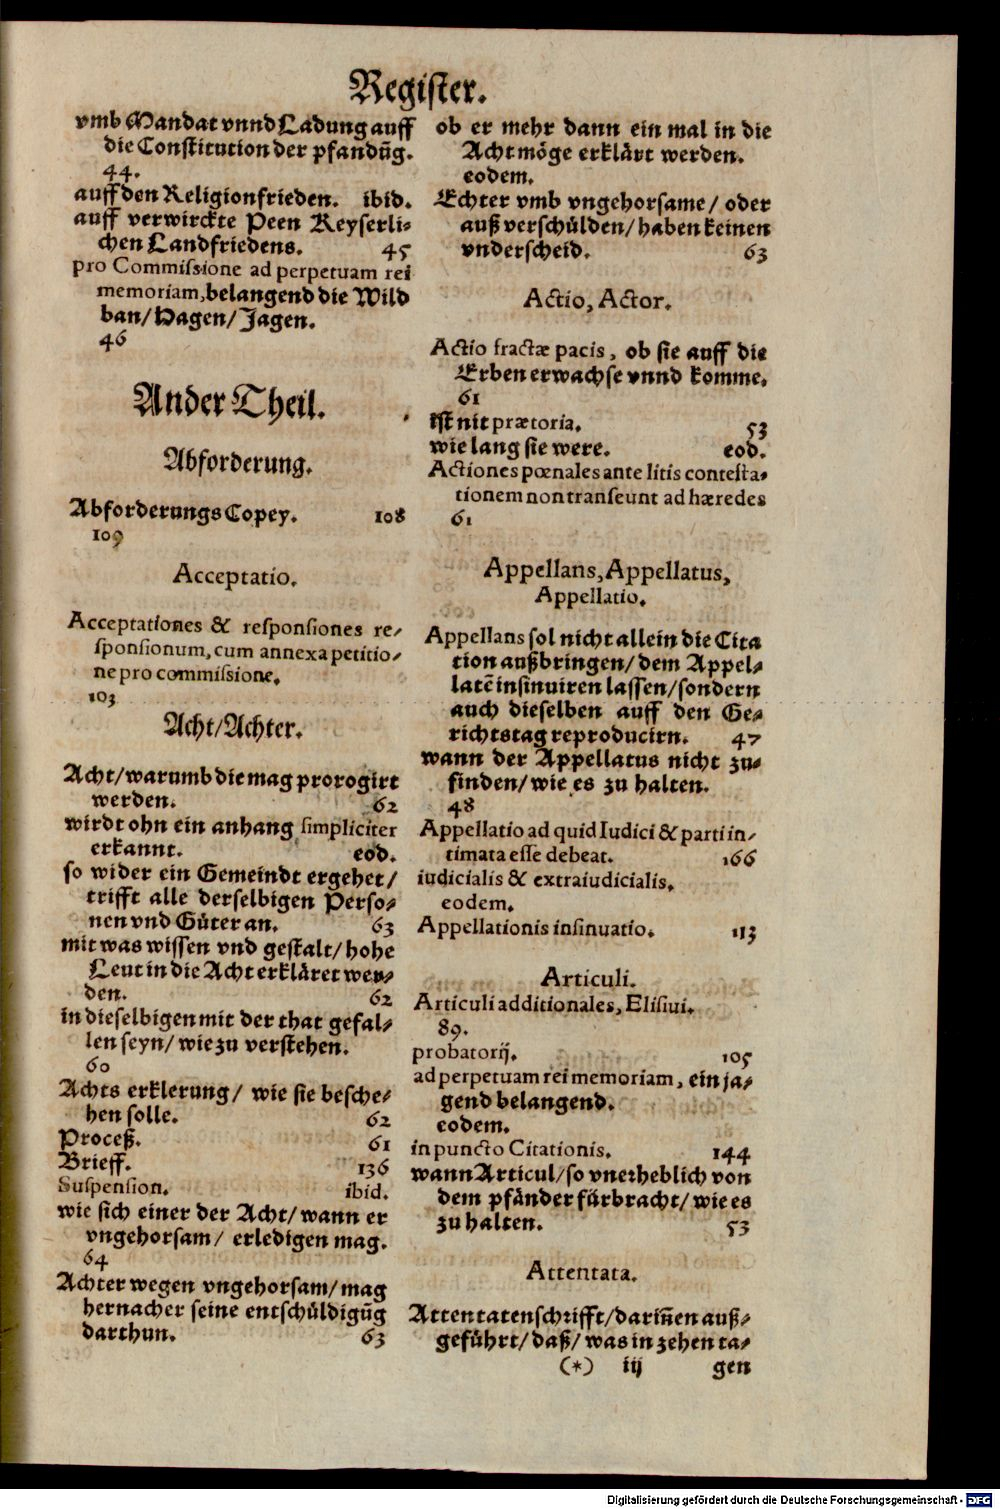 Register.
vmb Mandat vnnd Ladung auff
die Constitution der pfandũg.
44.
auff den Religionfrieden. ibid.
auff verwirckte Peen Keyserli-
chen Landfriedens. 45
pro Commissione ad perpetuam rei
memoriam, belangend die Wild
ban/ Hagen/ Jagen.
46
Ander Theil.
Abforderung.
Abforderungs Copey. 108
109
Acceptatio.
Acceptationes & responsiones re-
sponsionum, cum annexa petitio-
ne pro commissione.
103
Acht/ Achter.
Acht/ warumb die mag prorogirt
werden. 62
wirdt ohn ein anhang simpliciter
erkannt. eod.
so wider ein Gemeindt ergehet/
trifft alle derselbigen Perso-
nen vnd Güter an. 63
mit was wissen vnd gestalt/ hohe
Leut in die Acht erkläret wer-
den. 62
in dieselbigen mit der that gefal-
len seyn/ wie zu verstehen.
60
Achts erklerung/ wie sie besche-
hen solle. 62
Proceß. 61
Brieff. 136
Suspension. ibid.
wie sich einer der Acht/ wann er
vngehorsam/ erledigen mag.
64
Achter wegen vngehorsam/ mag
hernacher seine entschüldigũg
darthun. 63
ob er mehr dann ein mal in die
Acht möge erklärt werden.
eodem.
Echter vmb vngehorsame/ oder
auß verschülden/ haben keinen
vnderscheid. 63
Actio, Actor.
Actio fractæ pacis, ob sie auff die
Erben erwachse vnnd komme.
61
ist nit prætoria. 53
wie lang sie were. eod.
Actiones pœnales ante litis contesta-
tionem non transeunt ad hæredes
61
Appellans, Appellatus,
Appellatio.
Appellans sol nicht allein die Cita
tion außbringen/ dem Appel-
latē insinuiren lassen/ sondern
auch dieselben auff den Ge-
richtstag reproducirn. 47
wann der Appellatus nicht zu-
finden/ wie es zu halten.
48
Appellatio ad quid Iudici & parti in-
timata esse debeat. 166
iudicialis & extraiudicialis.
eodem.
Appellationis insinuatio. 113
Articuli.
Articuli additionales, Elisiui.
89.
probatorij. 105
ad perpetuam rei memoriam, ein ja-
gend belangend.
eodem.
in puncto Citationis. 144
wann Articul/ so vnerheblich von
dem pfänder fürbracht/ wie es
zu halten. 53
Attentata.
Attentatenschrifft/ dariñen auß-
geführt/ daß/ was in zehen ta-
(*) iij gen
Digitalisierung gefördert durch die Deutsche Forschungsgemeinschaft - DFG